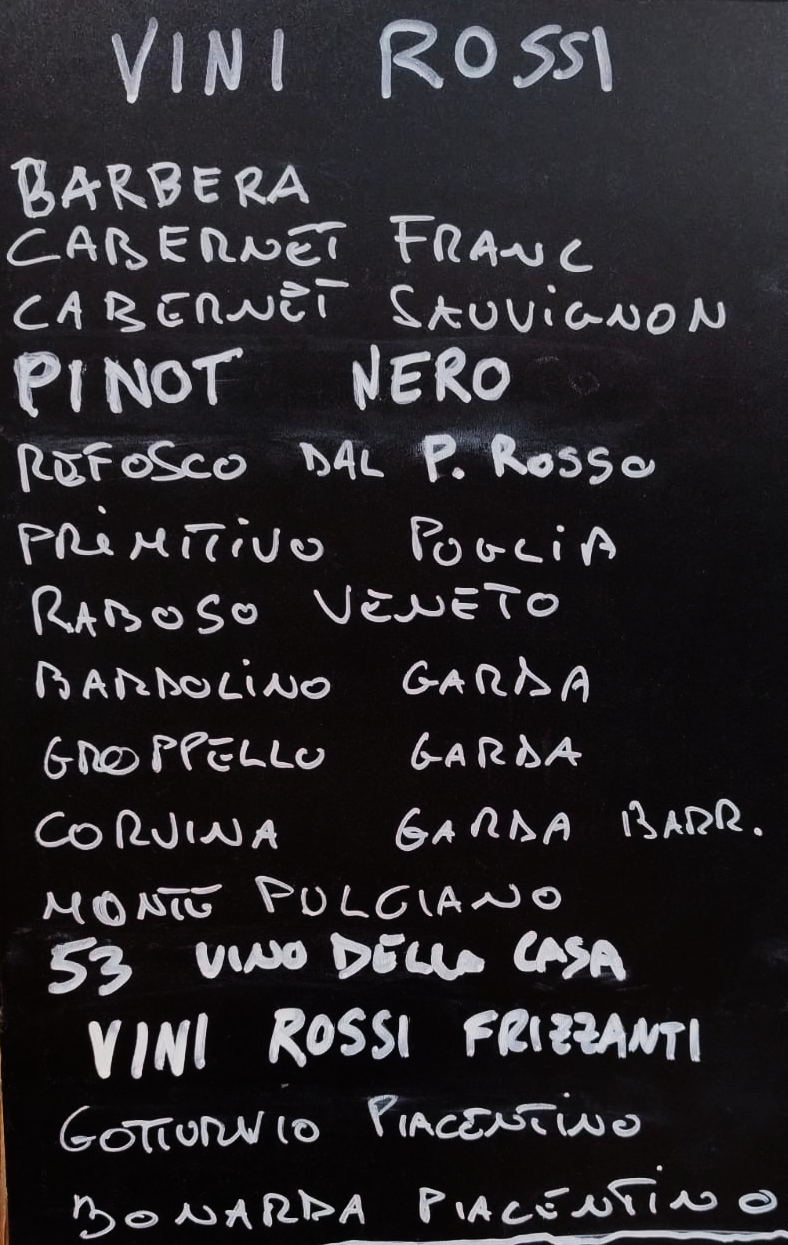 VINI ROSSI
BARBERA
CABERNET FRANC
CABERNET SAUViGNON
PINOT NERO
REFOSCO DAL P. ROSSO
PRiMiTiVO POGLiA
RABOSO VENETO
BARDOLiNO GARDA
GROPPELLO GARDA
CORVINA GARDA BARR.
MONTE PULCIANO
53 VINO DELLA CASA
VINI ROSSI FRIZZANTI
GOTTURNIO PIACENTINO
BONARDA PIACENTiNO